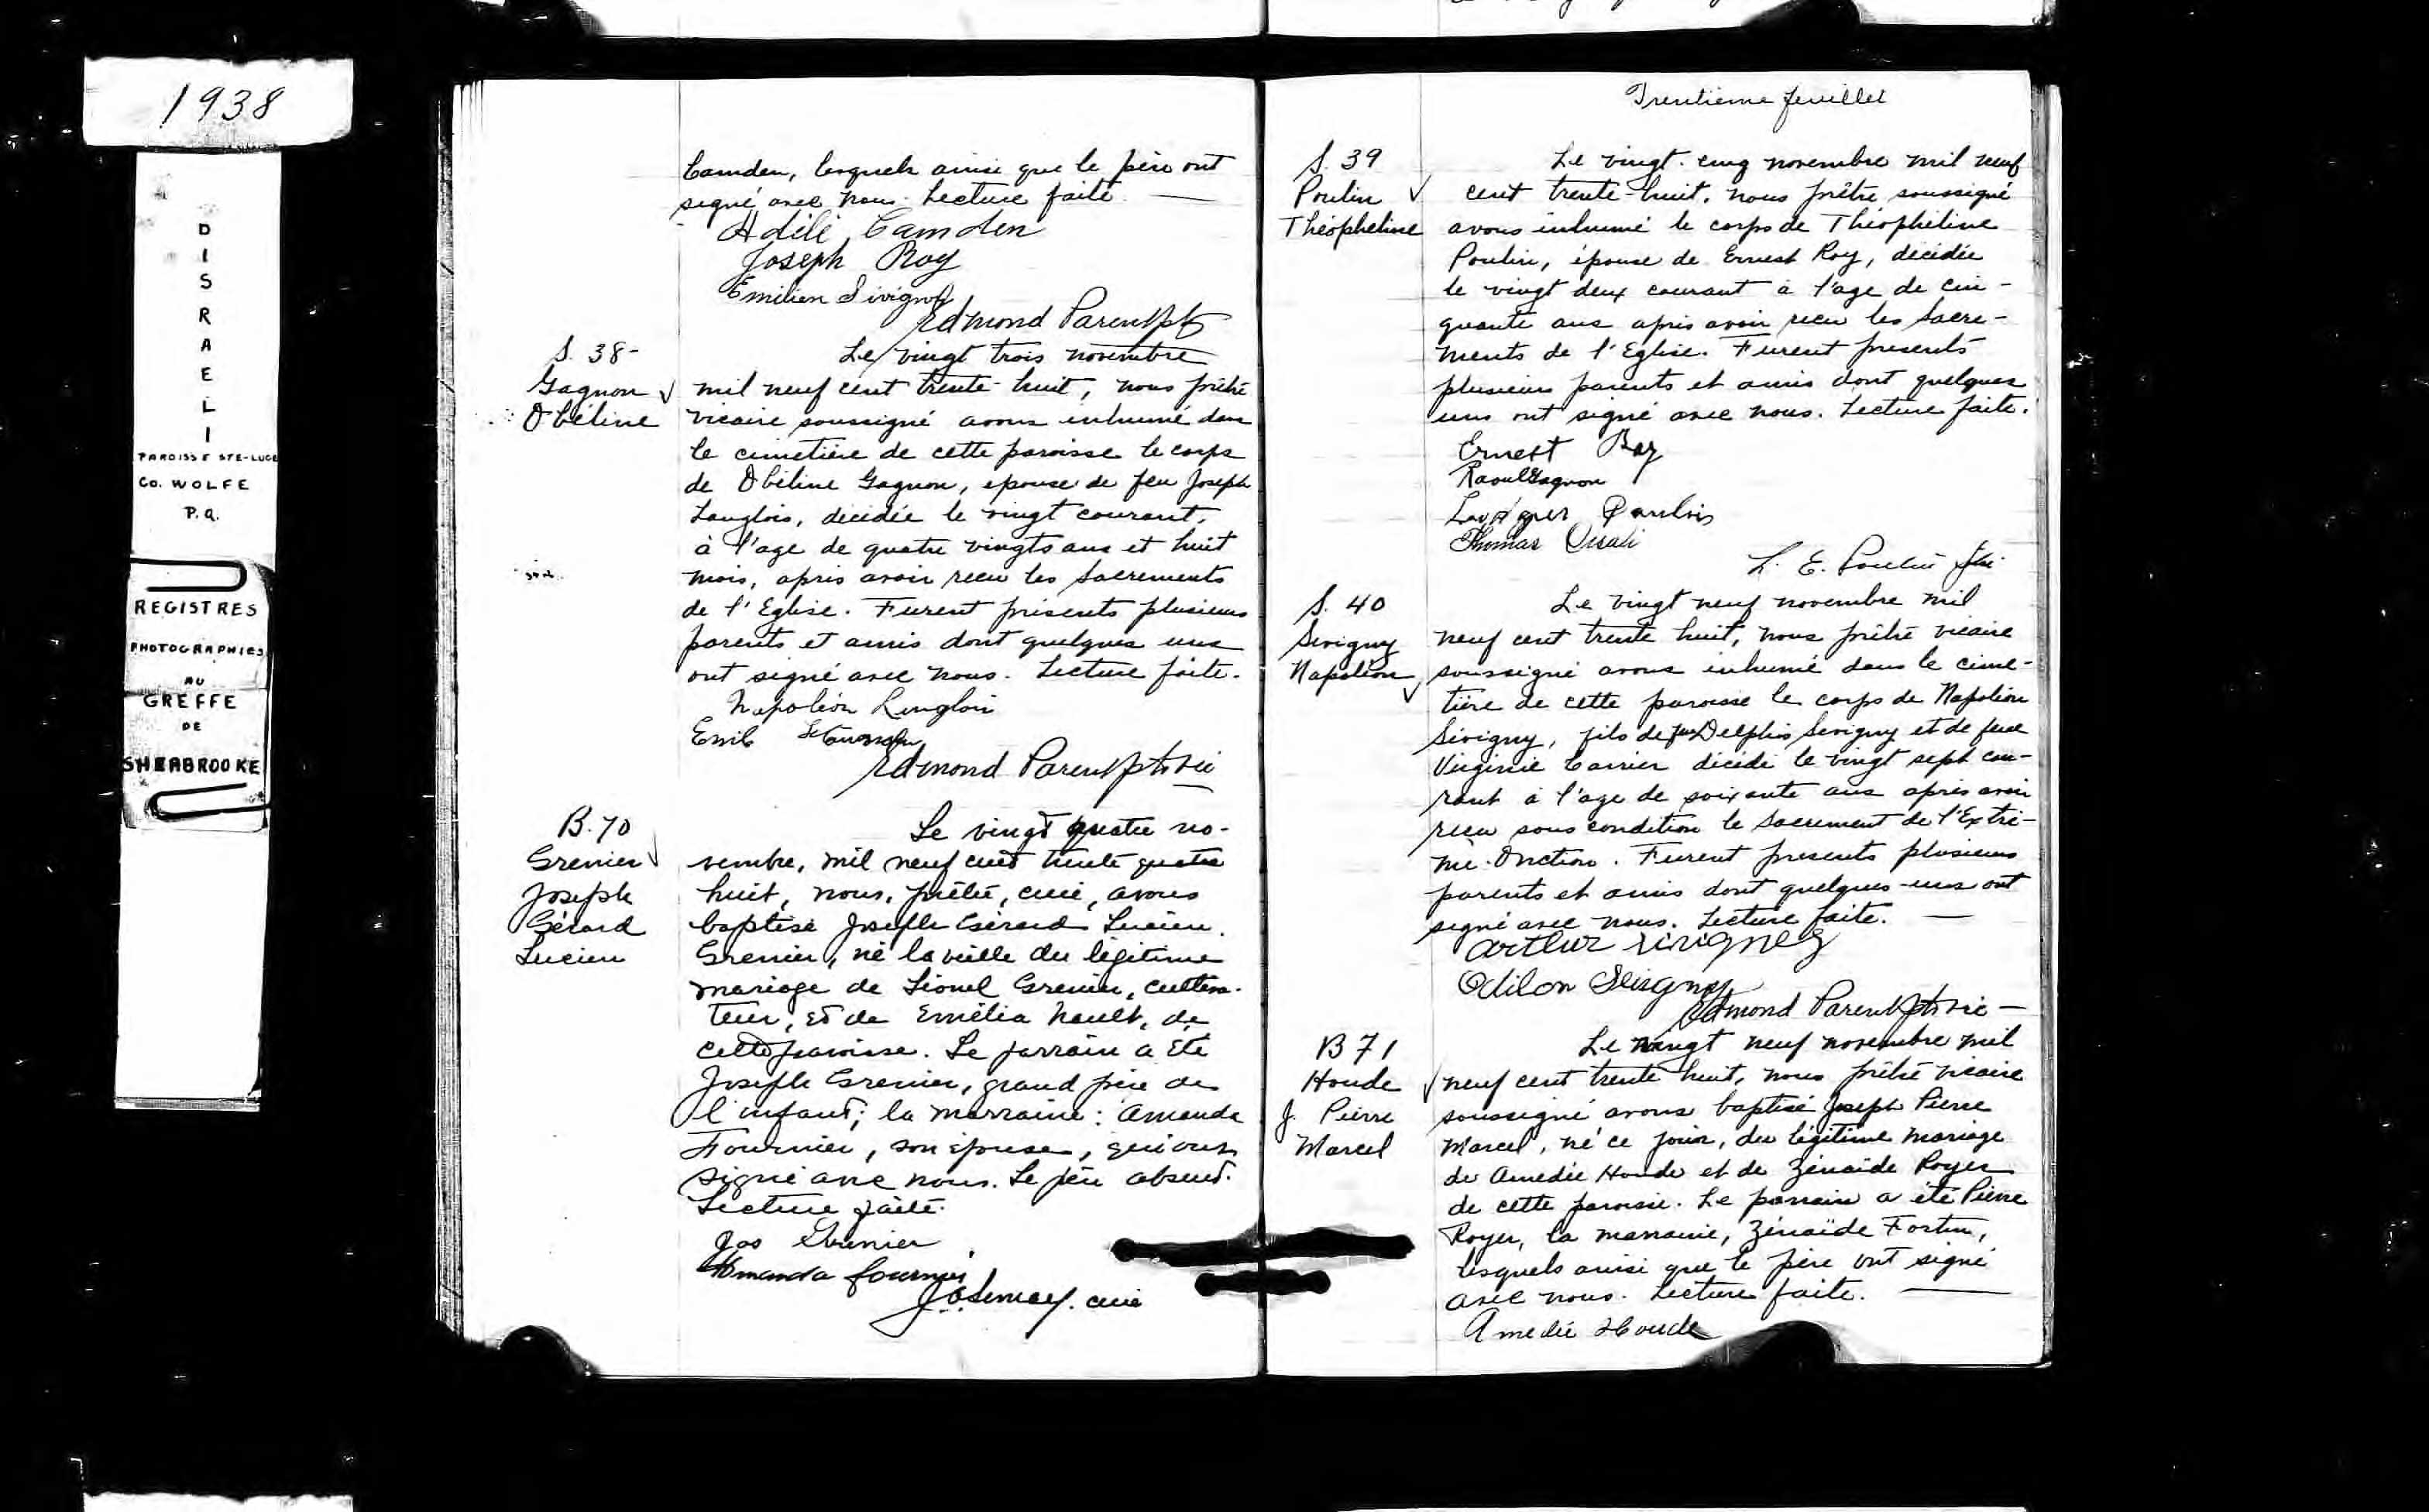 1938
DISRAELI
PAROISSE STE-LUCE
Co. WOLFE
P.Q.
REGISTRES
PHOTOGRAPHIES
AU
GREFFE
DE
SHERBROOKE
Camden, lesquels ainsi que le père ont
signé avec nous. Lecture faite.
Camden
Joseph Roy
Emilien Sévigny
Edmond Parent ptre
S. 38-
Gagnon
Obéline
Le vingt trois novembre
mil neuf cent trente-huit, nous prêtre
vicaire soussigné avons inhumé dans
le cimetière de cette paroisse le corps
de Obéline Gagnon, épouse de feu Joseph
Langlois, décédée le vingt courant,
à l'age de quatre vingts ans et huit
mois, après avoir recu les Sacrements
de l'Eglise. Furent présents plusieurs
parents et amis dont quelques uns
ont signé avec nous. Lecture faite.
Napoléon Langlois
Emile
Edmond Parent ptre vic
B. 70
Grenier
Joseph
Gérard
Lucien
Le vingt quatre no-
vembre, mil neuf cent trente quatre
huit, nous, prêtre, curé, avons
baptisé Joseph Gérard Lucien
Grenier, né la veille du légitime
mariage de Lionel Grenier, cultiva-
teur, et de Emélia Nault, de
cette paroisse. Le parrain a été
Joseph Grenier, grand père de
l'enfant; la marraine: Amanda
Fournier, son épouse, qui ont
signé avec nous. Le père absent.
Lecture faite.
Jos Grenier
Amanda fournier
curé
Trentième feuillet
S. 39
Poulin
Théopheline
Le vingt-cinq novembre mil neuf
cent trente-huit, nous prêtre soussigné
avons inhumé le corps de Théophéline
Poulin, épouse de Ernest Roy, décédée
le vingt deux courant à l'age de cin-
quante ans après avoir recu les Sacre-
ments de l'Eglise. Furent présents
plusieurs parents et amis dont quelques
uns ont signé avec nous. Lecture faite.
Ernest Roy
Raoul Gagnon
Thomas
L. E. Poulin ptre
S. 40
Sévigny
Napoléon
Le vingt neuf novembre mil
neuf cent trente huit, nous prêtre vicaire
soussigné avons inhumé dans le cime-
tière de cette paroisse le corps de Napoléon
Sévigny, fils de feu Delphis Sévigny et de feue
Virginie Carrier décédé le vingt sept cou-
rant à l'age de soixante ans après avoir
recu sous condition le Sacrement de l'Extrê-
me-Onction. Furent présents plusieurs
parents et amis dont quelques-uns ont
signé avec nous. Lecture faite.
Arthur Sévigney
Odilon Sévigny
Edmond Parent ptre vic
B 71
Houde
J. Pierre
Marcel
Le vingt neuf novembre mil
neuf cent trente huit, nous prêtre vicaire
soussigné avons baptisé Joseph Pierre
Marcel, né ce jour, du légitime mariage
de Amedée Houde et de Zénaïde Royer
de cette paroisse. Le parrain a été Pierre
Royer, la marraine, Zénaïde Fortin,
lesquels ainsi que le père ont signé
avec nous. Lecture faite.
Amedée Houde